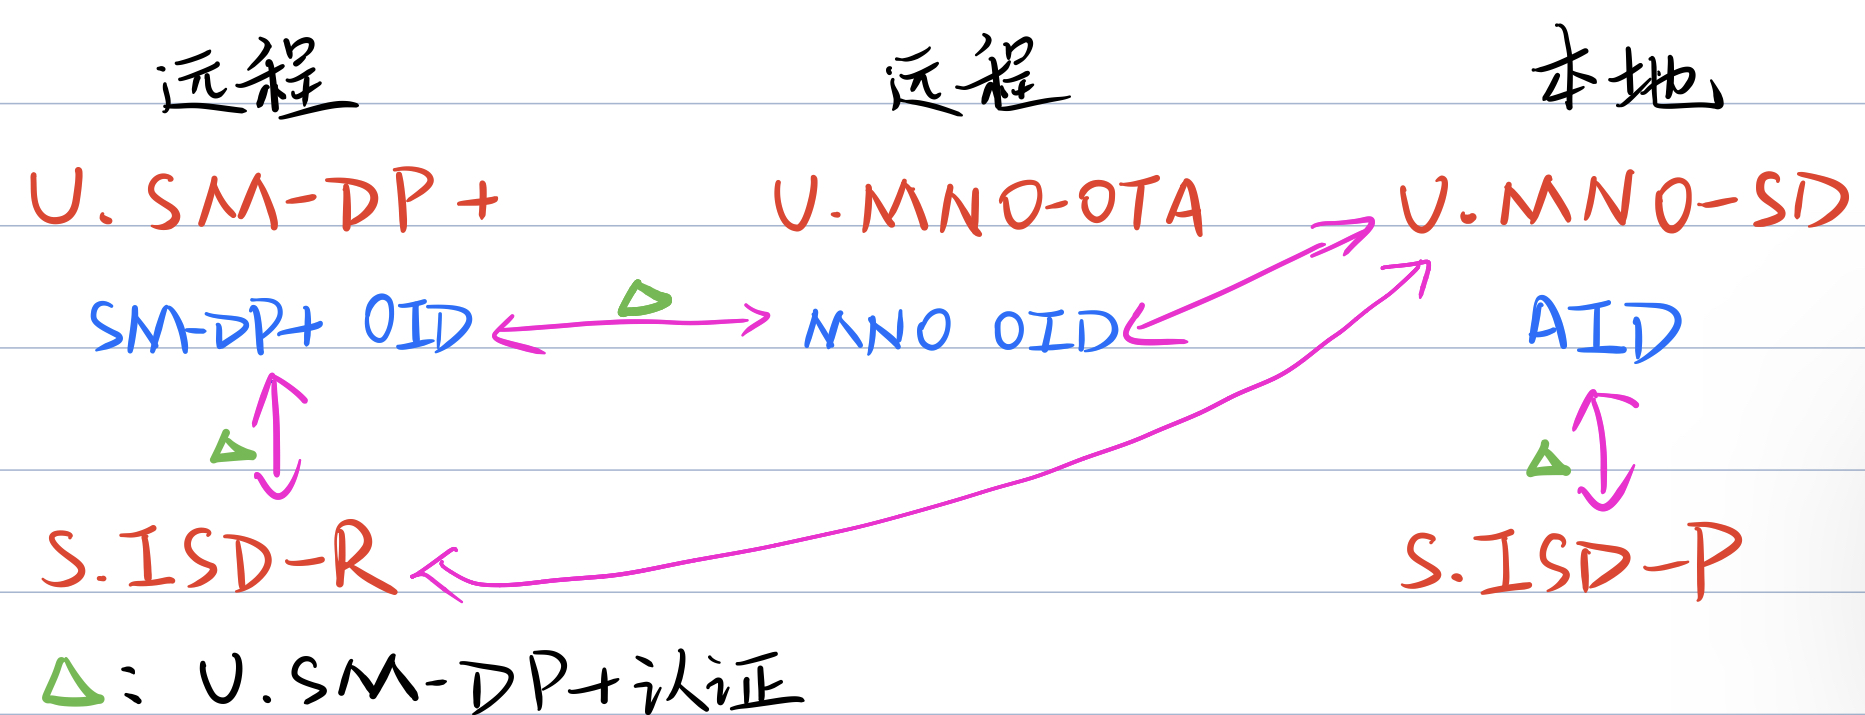 远程 远程 本地
U.SM-DP+ U.MNO-OTA U.MNO-SD
SM-DP+ OID MNO OID AID
S.ISD-R S.ISD-P
△: U.SM-DP+认证